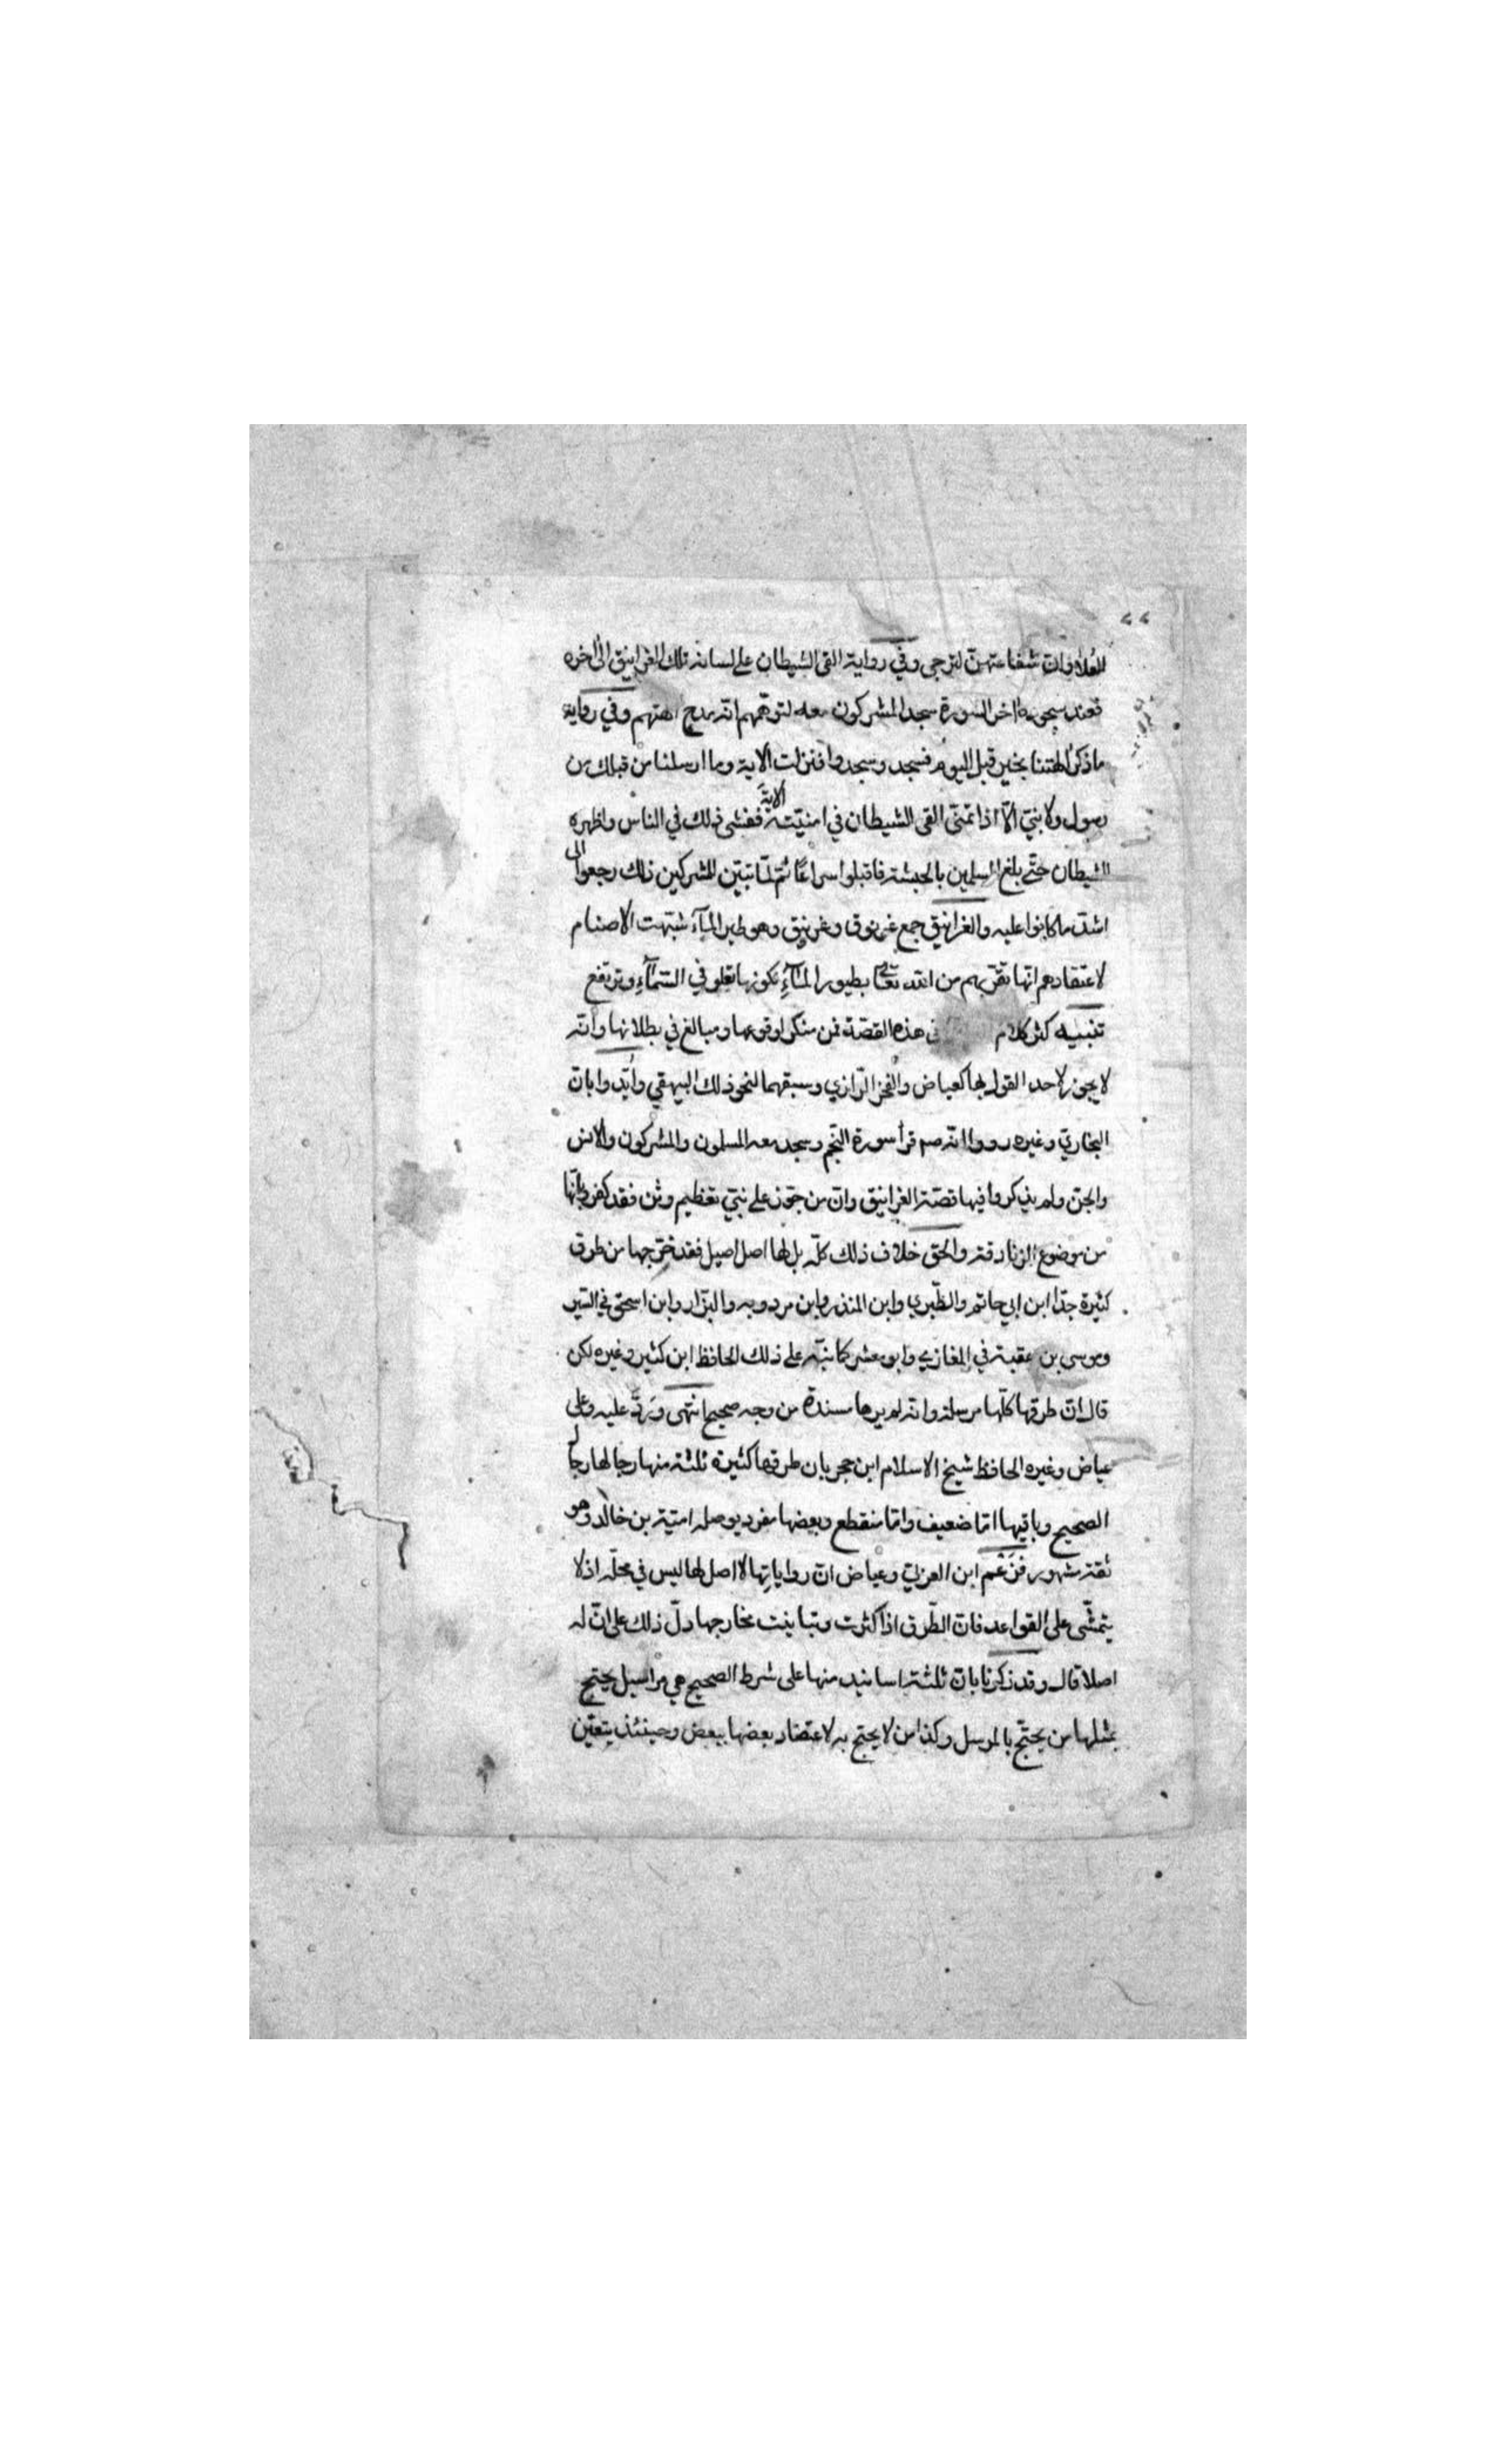 العُلا وانّ شفاعتهنّ لترجى وفي رواية القى الشيطان على لسانه تلك الغرانيق الى اخره
فعند سجوده اخر السورة سجد المشركون معه لتوهّمهم انّه مدح الهتهم وفي رواية
ما ذكر الهتنا بخير قبل اليوم فسجد وسجدوا فنزلت الاية وما ارسلنا من قبلك من
رسول ولا نبيّ الّا اذا تمنّى القى الشيطان في امنيّته الاية ففشى ذلك في الناس واظهره
الشيطان حتّى بلغ المسلمين بالحبشة فاقبلوا سراعًا ثم لمّا تبيّن للمشركين ذلك رجعوا الى
اشدّ ما كانوا عليه والغرانيق جمع غرنوق وغرنيق وهو طير المآء شبّهت الاصنام
لاعتقادهم انّها تقرّبهم من الله تعالى بطيور المآءِ لكونها تعلو في السّمآءِ وترتفع
تنبيه كثر كلام في هذه القصّة فمن منكر لوقوعها ومبالغ في بطلانها وانّه
لا يجوز لاحد القول بها كعياض والفخر الرّازي وسبقهما لنحو ذلك البيهقي وايّد وا بانّ
البخاريّ وغيره رووا انّه صم قرأ سورة النّجم وسجد معه المسلمون والمشركون والانس
والجنّ ولم يذكروا فيها قصّة الغرانيق وانّ من جوّز على نبيّ تعظيم وثن فقد كفر وبانّها
من موضوع الزنادقة والحق خلاف ذلك كلّه بل لها اصل اصيل فقد خرّجها من طرق
كثيرة جدّا ابن ابي حاتم والطّبري وابن المنذر وابن مردويه والبزّار وابن اسحق في السّير
وموسى بن عقبة في المغازي وابو معشر كما نبّه على ذلك الحافظ ابن كثير وغيره لكن
قال انّ طرقها كلّها مرسلة وانه لم يرها مسندة من وجه صحيح انتهى وَردّ عليه وعلى
عياض وغيره الحافظ شيخ الاسلام ابن حجر بان طرقها كثيرة ثلثة منها رجالها رجال
الصحيح وباقيها امّا ضعيف وامّا منقطع وبعضها مفرد بوصله اميّة بن خالد وهو
ثقة مشهور فزَعْم ابن العربيّ وعياض انّ رواياتها لا اصل لها ليس في محلّه اذ لا
يتمشّى على القواعد فانّ الطّرق اذا كثرت وتباينت مخارجها دلّ ذلك على انّ له
اصلا قال وقد ذكرنا بانّ ثلثة اسانيد منها على شرط الصحيح هي مراسيل يحتج
بمثلها من يحتجّ بالمرسل وكذا من لا يحتج به لاعتضاد بعضها ببعض وحينئذ يتعيّن